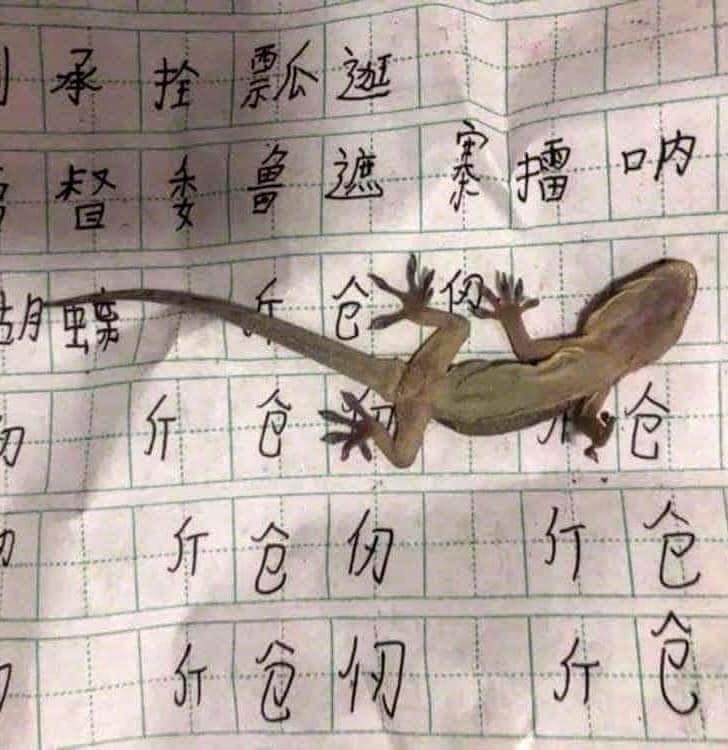 承 拴 瓢 逛
督 委 鲁 遮 寨 擂 呐
蝶 斤 仓 仞
斤 仓 仓
斤 仓 仞 斤 仓
斤 仓 仞 斤 仓